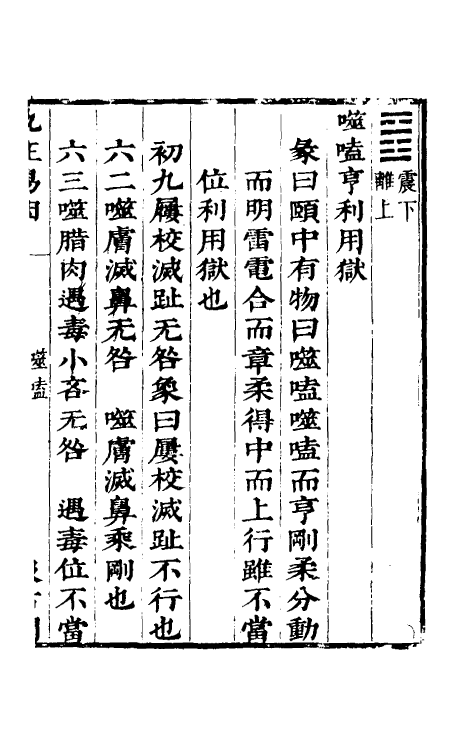 ䷔ 震下離上
噬嗑亨利用獄
彖曰頤中有物曰噬嗑噬嗑而亨剛柔分動
而明雷電合而章柔得中而上行雖不當
位利用獄也
初九屨校滅趾无咎象曰屨校滅趾不行也
六二噬膚滅鼻无咎 噬膚滅鼻乘剛也
六三噬腊肉遇毒小吝无咎 遇毒位不當
九正易因
噬嗑